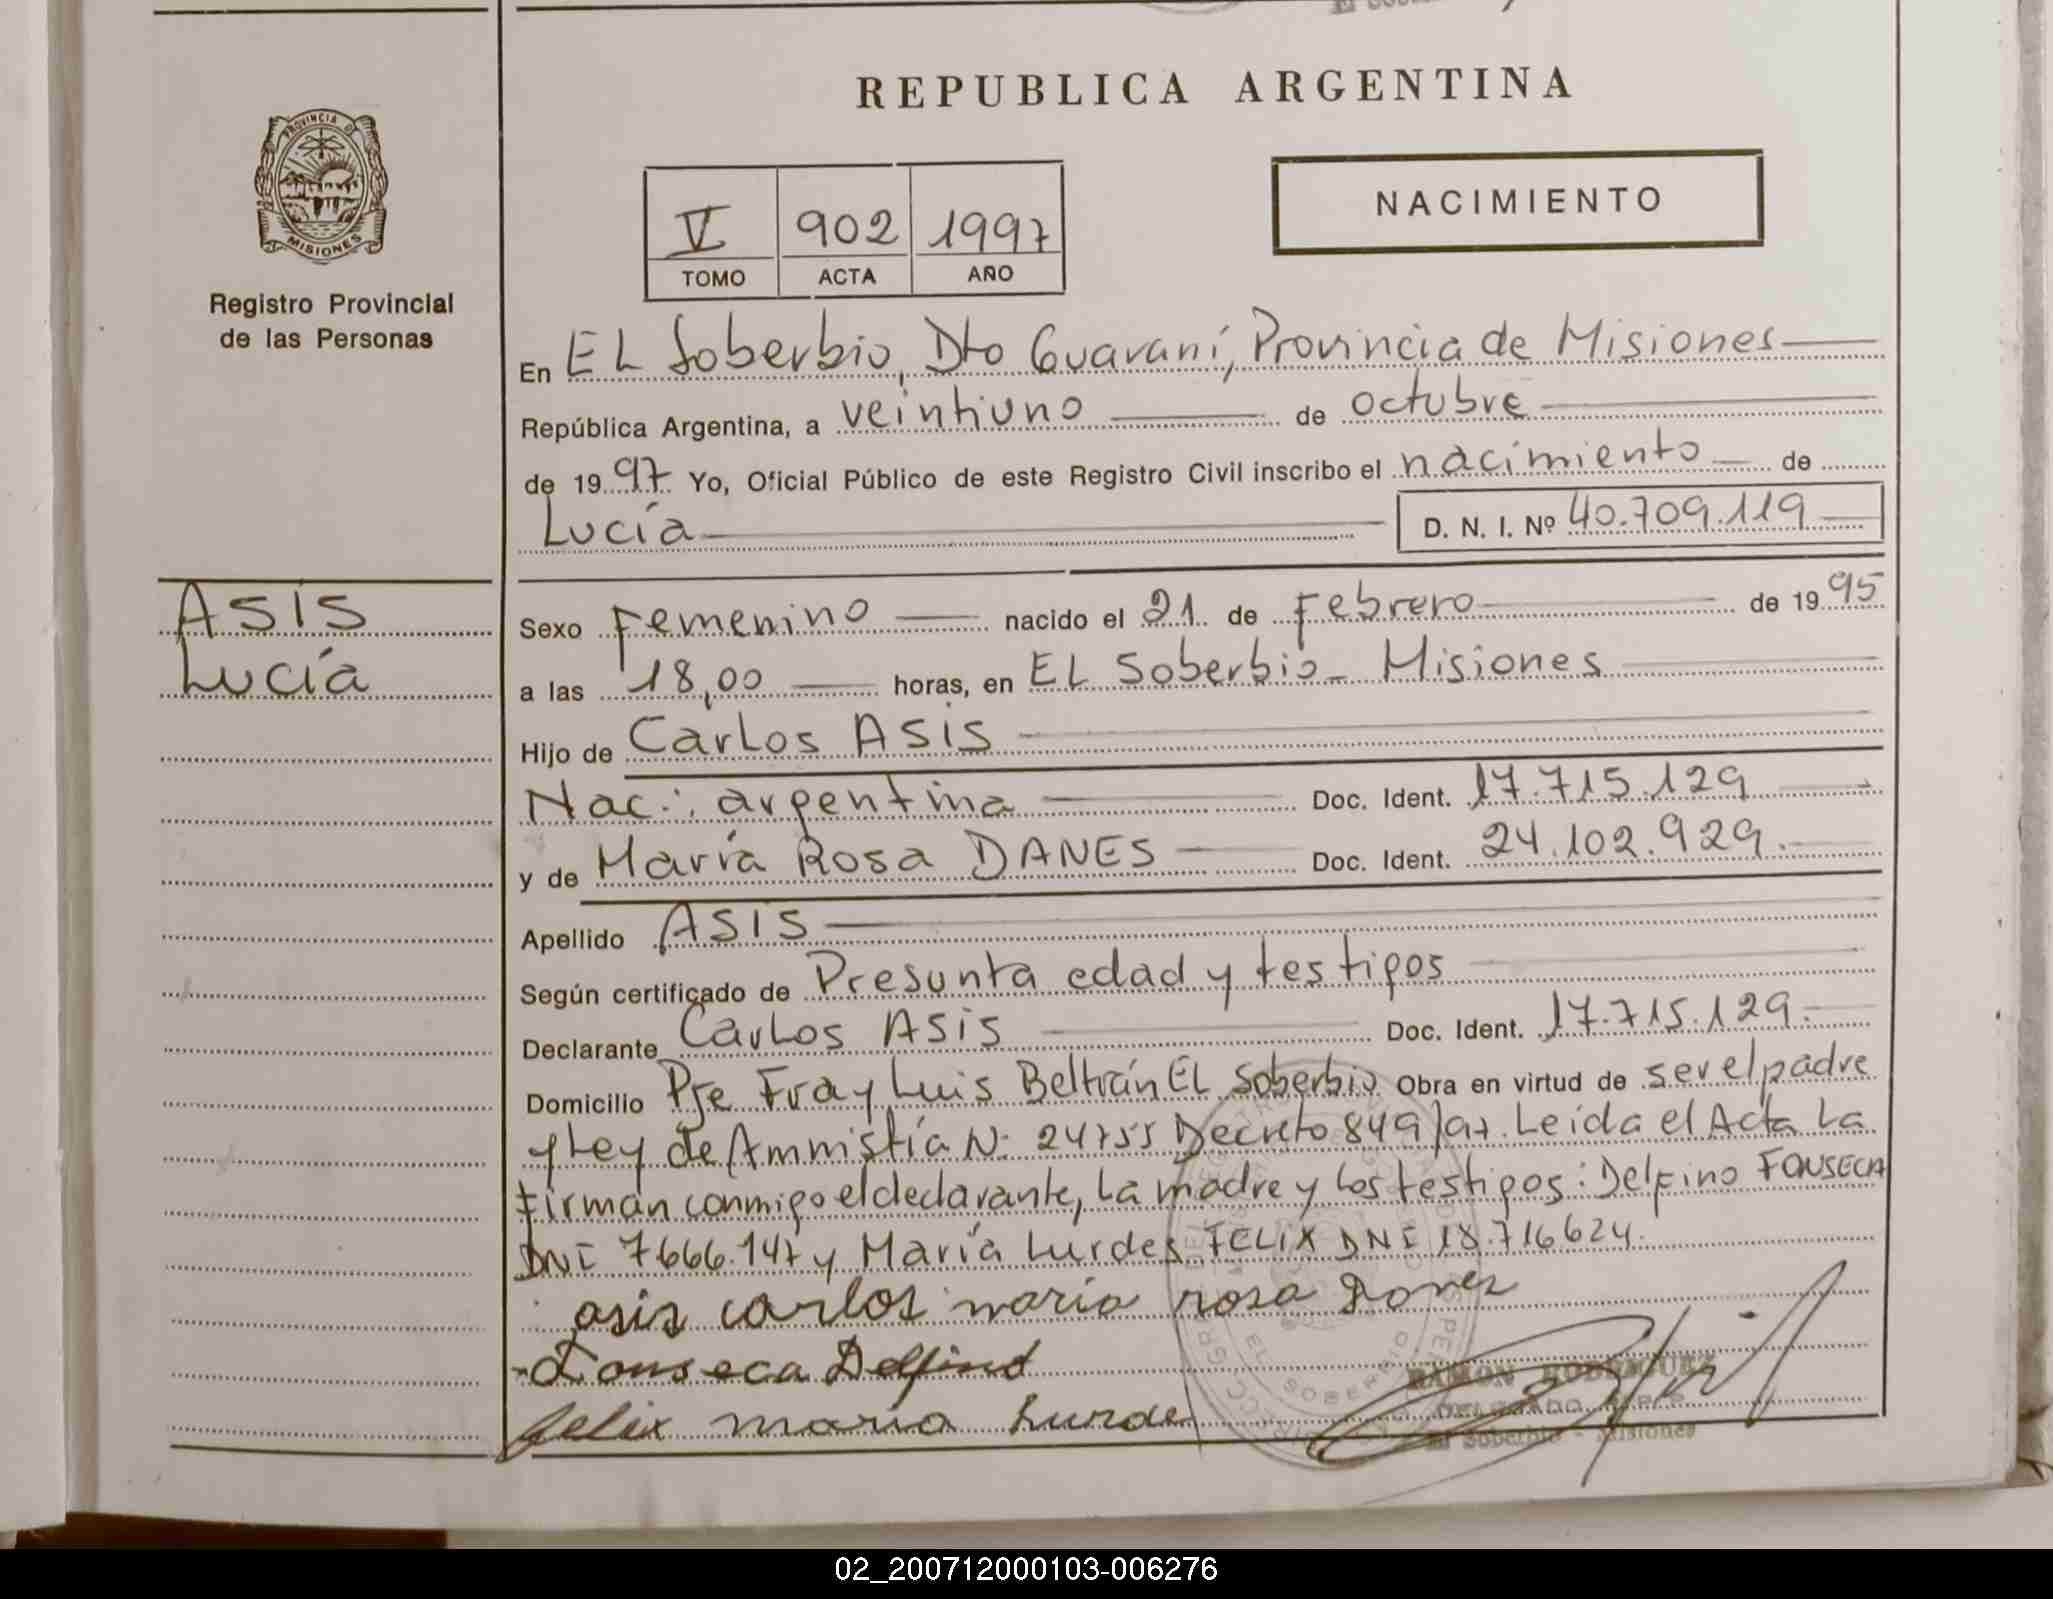 REPUBLICA ARGENTINA
PROVINCIA DE
MISIONES
Registro Provincial
de las Personas
V 902 1997
TOMO ACTA AÑO
NACIMIENTO
En EL Soberbio, Dto Guaraní, Provincia de Misiones
República Argentina, a veintiuno de octubre
de 1997 Yo, Oficial Público de este Registro Civil inscribo el nacimiento de
Lucía D. N. I. Nº 40.709.119
ASIS
Lucía
Sexo Femenino nacido el 21 de Febrero de 1995
a las 18,00 horas, en EL Soberbio - Misiones
Hijo de Carlos ASIS
Nac.: argentina Doc. Ident. 17.715.129
y de María Rosa DANES Doc. Ident. 24.102.929.
Apellido ASIS
Según certificado de Presunta edad y testigos
Declarante Carlos ASIS Doc. Ident. 17.715.129.
Domicilio Pje Fray Luis Beltrán EL Soberbio Obra en virtud de ser el padre
y Ley de Ammistía N: 24755 Decreto 849/97. Leída el Acta La
firman conmigo el declarante, La madre y Los testigos: Delfino FONSECA
DNI 7666.147 y María Lurdes FELIX DNI 18.716624.
asis carlos maria rosa Danes
Fonseca Delfino
felix maria Lurde
RAMON RODRIGUEZ
DELEGADO
El Soberbio - Misiones
EL SOBERBIO
02_200712000103-006276